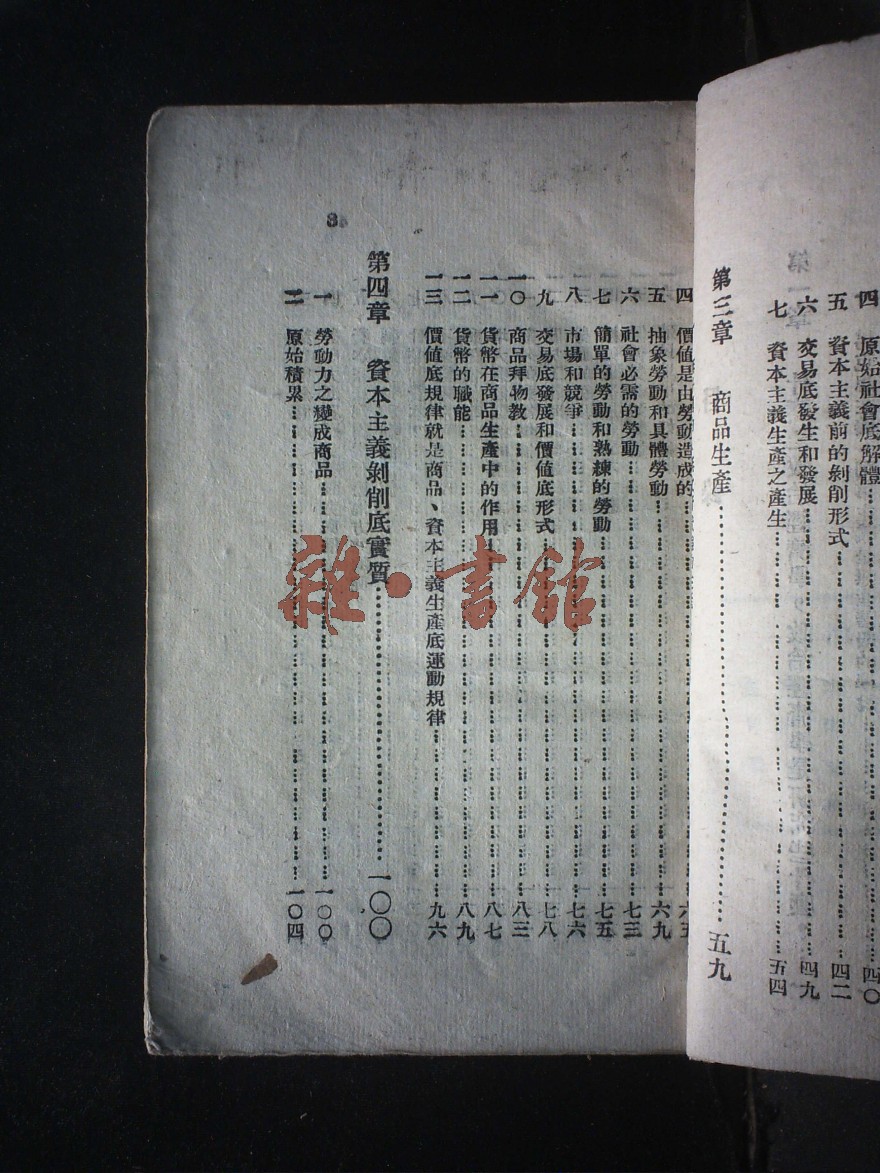 四 原始社會底解體……四〇
五 資本主義前的剝削形式……四二
六 交易底發生和發展……四九
七 資本主義生產之產生……五四
第三章 商品生產……五九
四 價値是由勞動造成的……六五
五 抽象勞動和具體勞動……六九
六 社會必需的勞動……七三
七 簡單的勞動和熟練的勞動……七五
八 市場和競爭……七六
九 交易底發展和價値底形式……七八
一〇 商品拜物教……八三
一一 貨幣在商品生產中的作用……八七
一二 貨幣的職能……八九
一三 價値底規律就是商品、資本主義生產底運動規律……九六
第四章 資本主義剝削底實質……一〇〇
一 勞動力之變成商品……一〇〇
二 原始積累……一〇四
3
雜·書館